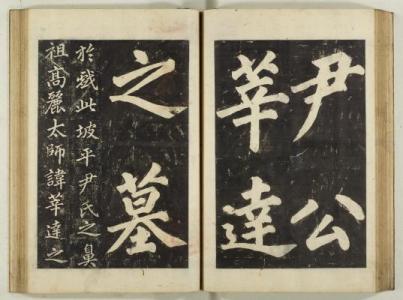 尹公
莘達
之墓
於戱此坡平尹氏之鼻
祖高麗太師諱莘達之